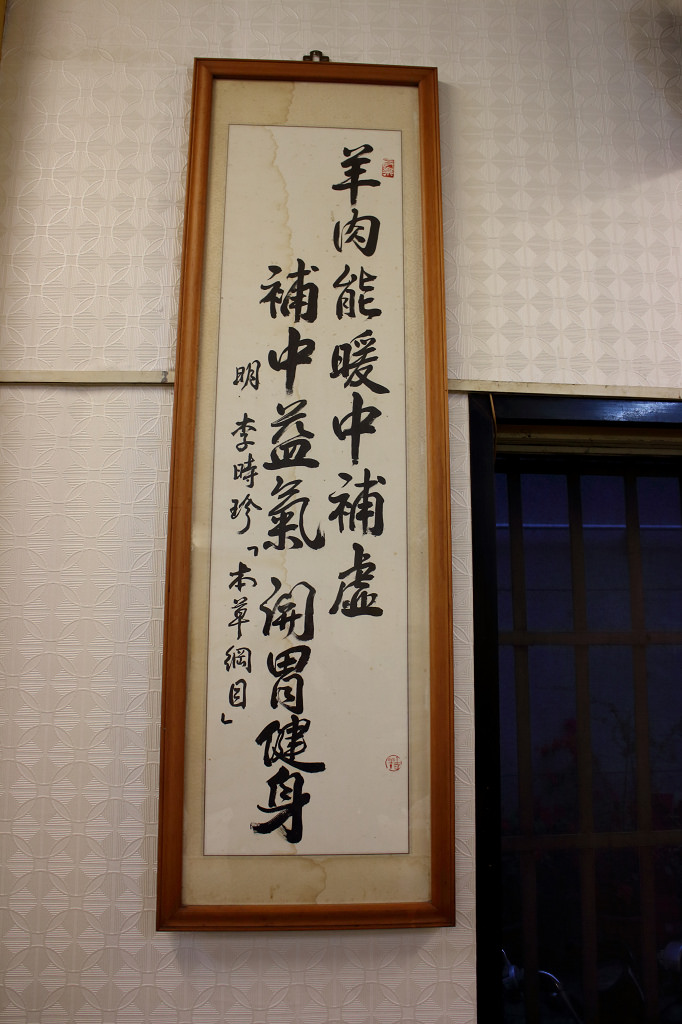 羊肉能暖中補虛
補中益氣開胃健身
明 李時珍「本草綱目」